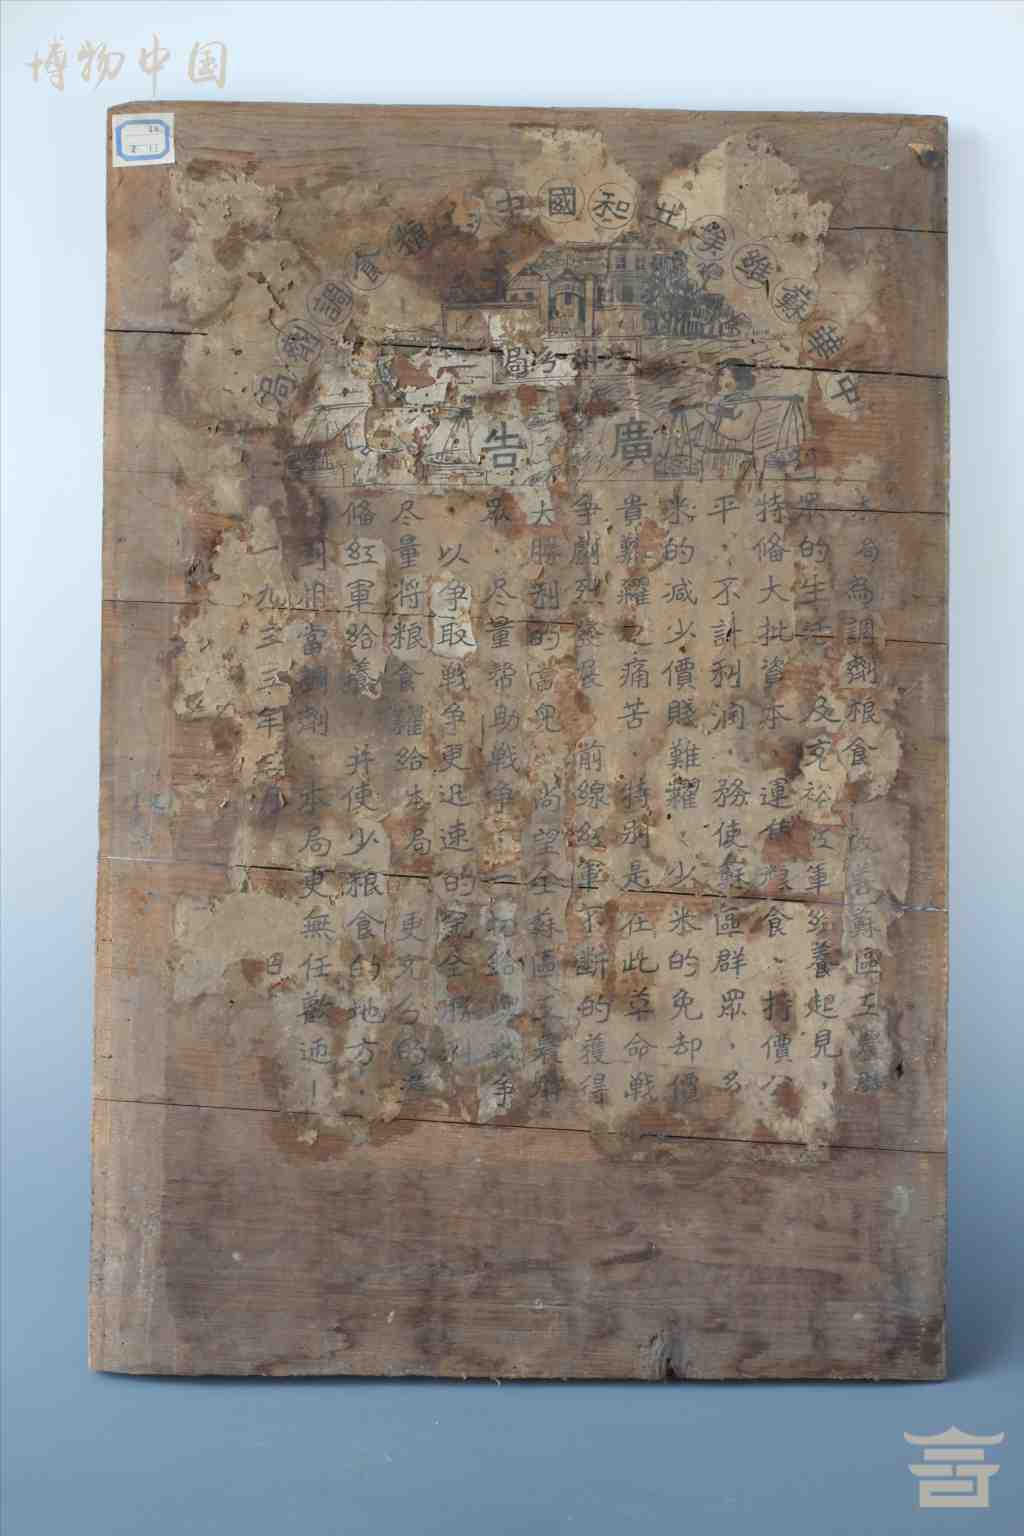 博物中国
中華蘇維埃共和國中央粮食調劑局
分局
廣告
本局為調劑粮食改善蘇區工農群
眾的生活及充裕红軍給養起見，
特俻大批資本運售粮食、持價公
平、不計利润、務使蘇區群眾、多
米的减少價賤難糶、少米的免却價
貴難糴之痛苦、特别是在此革命戦
争劇烈發展前線红軍不断的獲得
大勝利的當兒、尚望全蘇區工農群
眾、尽量帮助戦争、一切給與戦争
以争取戦争更迅速的完全勝利
尽量将粮食糶給本局更充分的准
俻红軍給養并使少粮食的地方、
得相當調劑本局更無任歡迎！
一九三三年三月 日